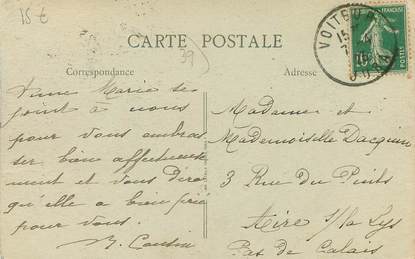 15 €
CARTE POSTALE
39
Correspondance
Adresse
VOITEUR
15
JURA
FRANÇAISE
POSTES
Marie se
joint à nous
pour vous embras
ser bien affectueuse
ment et vous dira
qu'elle a bien prié
pour vous.
Madame et
Mademoiselle
3 Rue du Puits
Aire s/la Lys
Pas de Calais